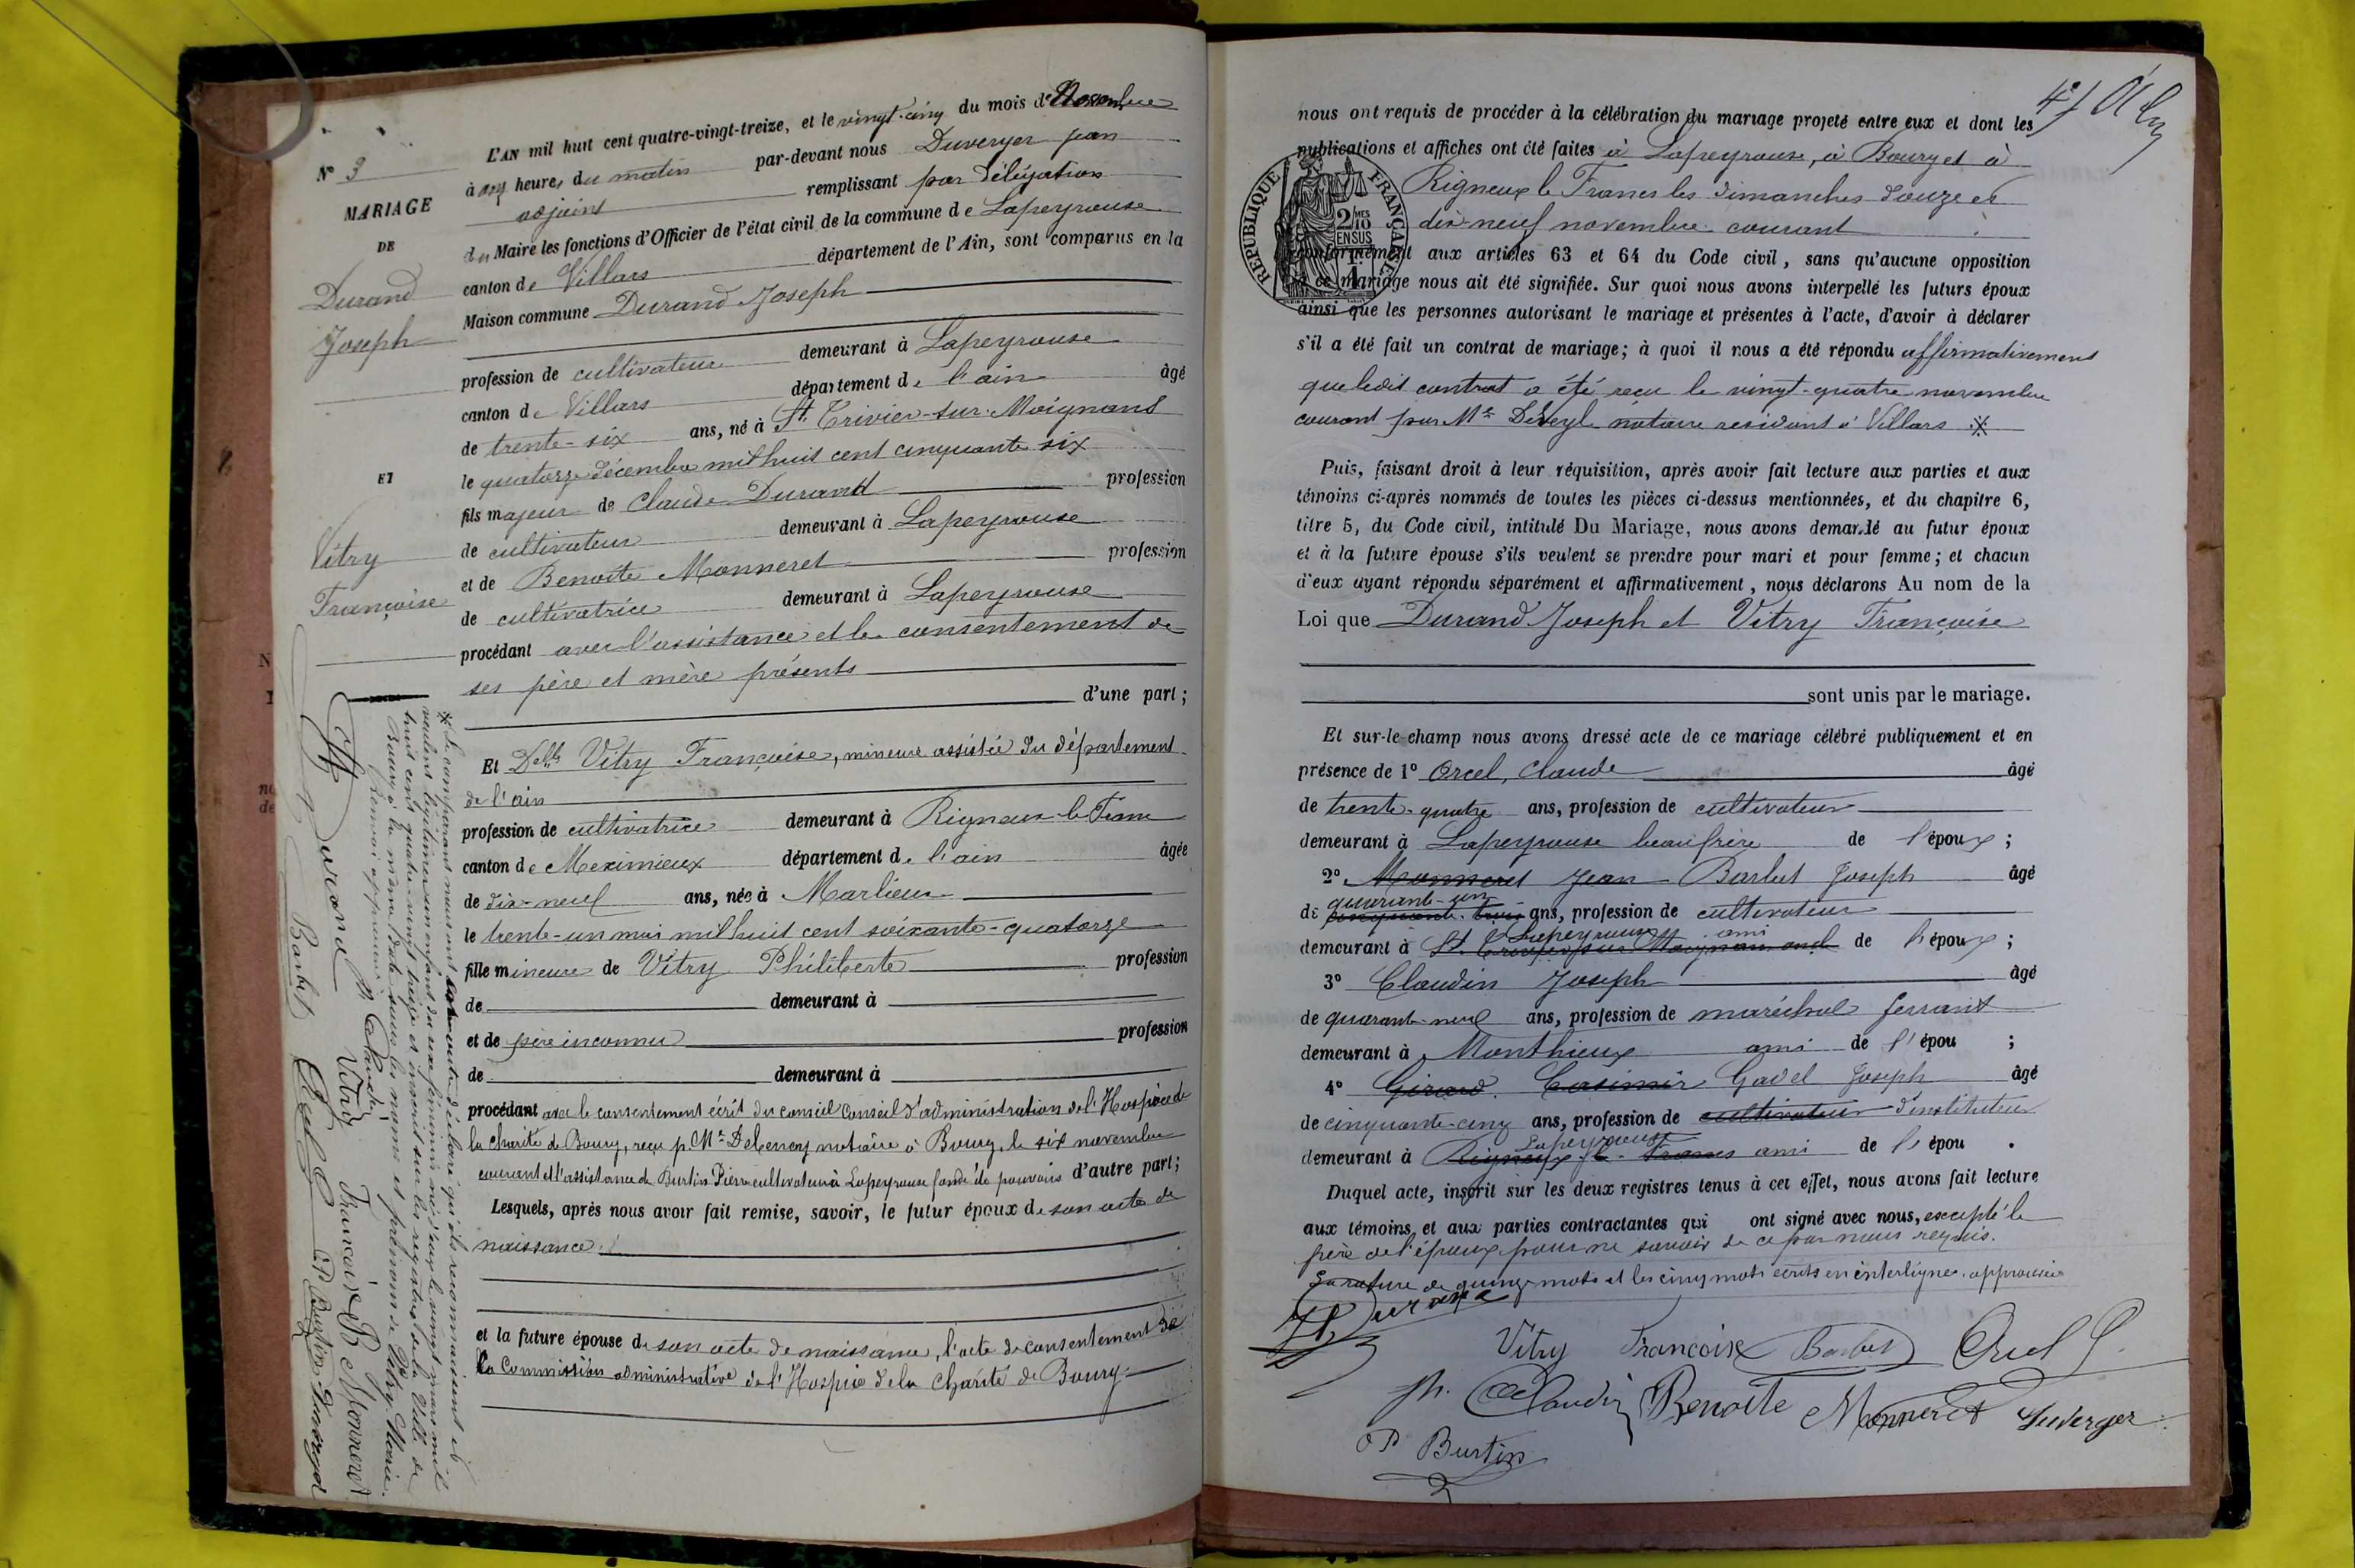 N° 3
MARIAGE
DE
Durand
Joseph
ET
Vitry
Françoise
L'AN mil huit cent quatre-vingt-treize, et le vingt-cinq du mois de Novembre
à dix heures du matin par-devant nous Duverger Jean
adjoint remplissant par délégation
du Maire les fonctions d'Officier de l'état civil de la commune de Lapeyrouse
canton de Villars département de l'Ain, sont comparus en la
Maison commune Durand Joseph
profession de cultivateur demeurant à Lapeyrouse
canton de Villars département de l'ain âgé
de trente-six ans, né à St Trivier-sur-Moignans
le quatorze décembre mil huit cent cinquante six
fils majeur de Claude Durand profession
de cultivateur demeurant à Lapeyrouse
et de Benoite Monneret profession
de cultivatrice demeurant à Lapeyrouse
procédant avec l'assistance et le consentement de
ses père et mère présents
d'une part;
Et Delle Vitry Françoise, mineure assistée du département
de l'ain
profession de cultivatrice demeurant à Rigneux-le-Franc
canton de Meximieux département de l'ain âgée
de dix-neuf ans, née à Marlieux
le trente-un mai mil huit cent soixante-quatorze
fille mineure de Vitry Philiberte profession
de demeurant à
et de père inconnu profession
de demeurant à
procédant avec le consentement écrit du conseil Conseil d'administration de l'Hospice de
la Charité de Bourg, reçu p. Me notaire à Bourg, le six novembre
courant et l'assistance de Burtin Pierre cultivateur à Lapeyrouse fondé de pouvoirs d'autre part;
Lesquels, après nous avoir fait remise, savoir, le futur époux de son acte de
naissance
et la future épouse de son acte de naissance, l'acte de consentement de
la Commission administrative de l'Hospice de la Charité de Bourg
※ Les comparants nous ont en outre déclaré qu'ils reconnaissent et
veulent légitimer un enfant du sexe féminin né d'eux le vingt mars mil
huit cent quatre-vingt treize et inscrit sur les registres de la Ville de
Bourg à la même date sous les noms et prénom de Vitry Marie.
Renvoi approuvé
Durand Claudin Vitry Françoise B Monneret
Barbet Orcel C P Burtin Duverger
nous ont requis de procéder à la célébration du mariage projeté entre eux et dont les
publications et affiches ont été faites à Lapeyrouse, à Bourg et à
Rigneux le Franc les dimanches douze et
dix-neuf novembre courant
conformément aux articles 63 et 64 du Code civil, sans qu'aucune opposition
à ce mariage nous ait été signifiée. Sur quoi nous avons interpellé les futurs époux
ainsi que les personnes autorisant le mariage et présentes à l'acte, d'avoir à déclarer
s'il a été fait un contrat de mariage; à quoi il nous a été répondu affirmativement
que ledit contrat a été reçu le vingt-quatre novembre
courant par Me notaire résidant à Villars ※
RÉPUBLIQUE FRANÇAISE
2/10 MES
EN SUS
Puis, faisant droit à leur réquisition, après avoir fait lecture aux parties et aux
témoins ci-après nommés de toutes les pièces ci-dessus mentionnées, et du chapitre 6,
titre 5, du Code civil, intitulé Du Mariage, nous avons demandé au futur époux
et à la future épouse s'ils veulent se prendre pour mari et pour femme; et chacun
d'eux ayant répondu séparément et affirmativement, nous déclarons Au nom de la
Loi que Durand Joseph et Vitry Françoise
sont unis par le mariage.
Et sur-le-champ nous avons dressé acte de ce mariage célébré publiquement et en
présence de 1° Orcel, Claude âgé
de trente-quatre ans, profession de cultivateur
demeurant à Lapeyrouse beaufrère de l'époux;
2° Monneret Jean Barbet Joseph âgé
quarante-un
de cinquante-trois ans, profession de cultivateur
Lapeyrouse ami
demeurant à St Trivier sur Moignans oncle de l'époux;
3° Claudin Joseph âgé
de quarante-neuf ans, profession de maréchal ferrant
demeurant à Monthieux ami de l'épou;
4° Girard Casimir Gavel Joseph âgé
de cinquante-cinq ans, profession de cultivateur d'instituteur
Lapeyrouse
demeurant à Rigneux-le-Franc ami de l'épou.
Duquel acte, inscrit sur les deux registres tenus à cet effet, nous avons fait lecture
aux témoins et aux parties contractantes qui ont signé avec nous, excepté le
père de l'époux pour ne savoir de ce par nous requis.
La rature de quinze mots et les cinq mots écrits en interligne approuvée
Durand
Vitry Francoise Barbet Orcel C.
Claudin Benoite Monneret Duverger
P Burtin